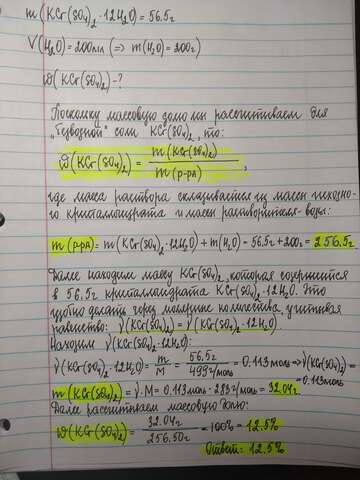 m (KCr(SO₄)₂ · 12H₂O) = 56.5г
V(H₂O) = 200мл (=> m(H₂O) = 200г)
ω(KCr(SO₄)₂) - ?
Поскольку массовую долю мы рассчитываем для
„безводной" соли KCr(SO₄)₂, то:
ω(KCr(SO₄)₂) = m(KCr(SO₄)₂) / m(р-ра) ,
где масса раствора складывается из массы исходно-
го кристаллогидрата и массы растворителя-воды:
m(р-ра) = m(KCr(SO₄)₂ · 12H₂O) + m(H₂O) = 56.5г + 200г = 256.5г.
Далее находим массу KCr(SO₄)₂, которая содержится
в 56.5г кристаллогидрата KCr(SO₄)₂ · 12H₂O. Это
удобно делать через молярные количества, учитывая
равенство: ν(KCr(SO₄)₂) = ν(KCr(SO₄)₂ · 12H₂O).
Находим ν(KCr(SO₄)₂ · 12H₂O):
ν(KCr(SO₄)₂ · 12H₂O) = m / M = 56.5г / 499г/моль = 0.113моль => ν(KCr(SO₄)₂) =
= 0.113моль
m(KCr(SO₄)₂) = ν · M = 0.113моль · 283г/моль = 32.04г.
Далее рассчитываем массовую долю:
ω(KCr(SO₄)₂) = 32.04г / 256.50г · 100% = 12.5%
Ответ: 12.5%